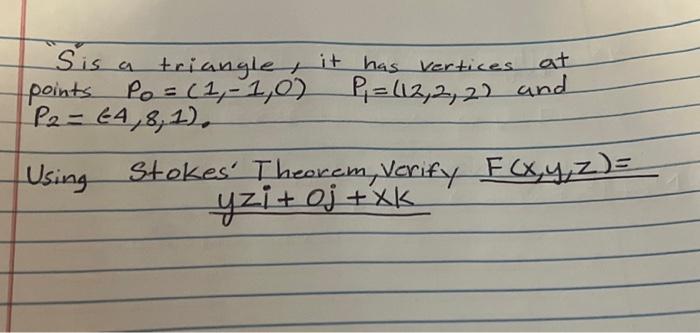 "S" is a triangle, it has vertices at
points P0 = (1,-1,0) P1=(12,2,2) and
P2 = (-4,8,1).
Using Stokes' Theorem, Verify F(x,y,z)=
yzi + 0j + xk